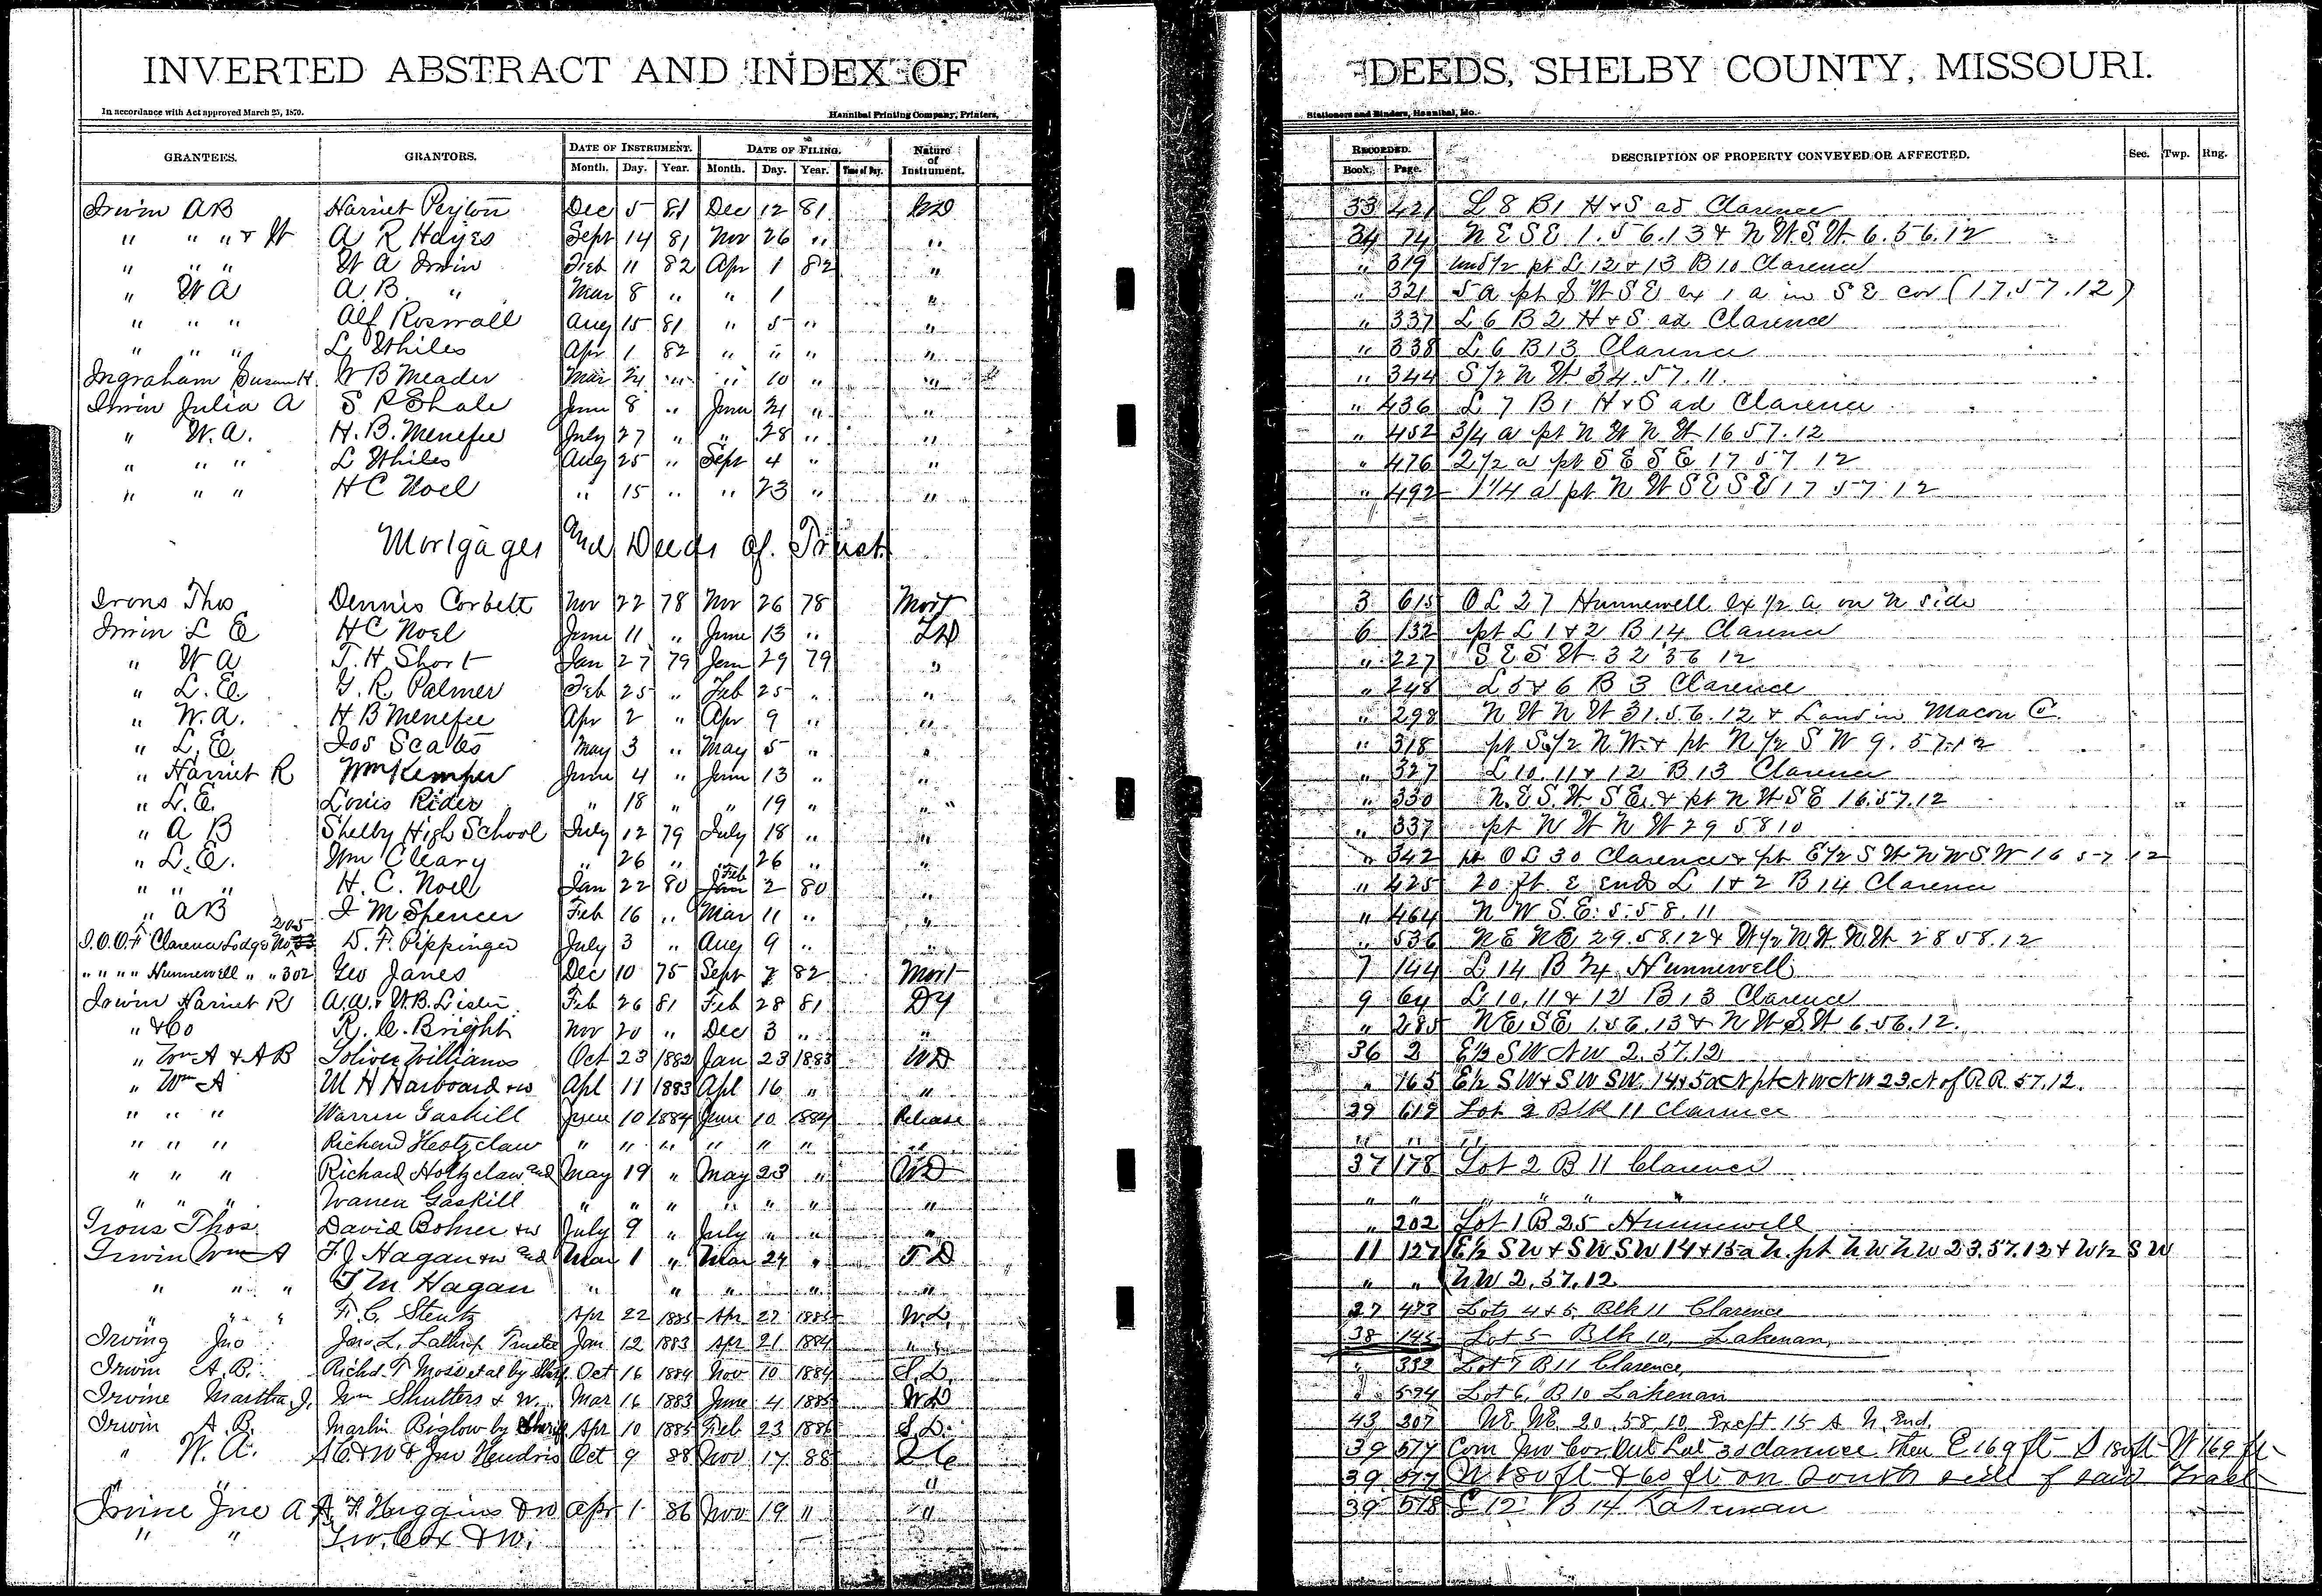 INVERTED ABSTRACT AND INDEX OF DEEDS, SHELBY COUNTY, MISSOURI.
In accordance with Act approved March 25, 1870. Hannibal Printing Company, Printers, Stationers and Binders, Hannibal, Mo.
GRANTEES. GRANTORS. DATE OF INSTRUMENT. DATE OF FILING. Nature of Instrument. RECORDED. DESCRIPTION OF PROPERTY CONVEYED OR AFFECTED. Sec. Twp. Rng.
Month. Day. Year. Month. Day. Year. Time of Day. Book. Page.
Irwin AB Harriet Peyton Dec 5 81 Dec 12 81 WD 33 421 L 8 B1 H+S ad Clarence
" " " + W A R Hayes Sept 14 81 Nov 26 " " 34 74 N E S E 1.56.13 + N W S W 6.56.12
" " " W A Irwin Feb 11 82 Apr 1 82 " " 319 und 1/2 pt L 12 + 13 B 10 Clarence
" W A A.B. " Mar 8 " " 1 " " 321 5 a pt S W S E ex 1 a in S E cor (17.57.12)
" " " Alf Roswall Aug 15 81 " 5 " " " 337 L 6 B 2 H + S ad Clarence
" " " L Whiles Apr 1 82 " " " " " 338 L 6 B 13 Clarence
Ingraham Susan H. W B Meader Mar 24 " " 10 " " " 344 S 1/2 N W 34.57.11.
Irwin Julia A S P Shale June 8 " June 21 " " " 436 L 7 B 1 H + S ad Clarence
" W.A. H.B. Menefee July 27 " " 28 " " " 452 3/4 a pt N W N W 16 57.12
" " " L Whiles Aug 25 " Sept 4 " " " 476 2 1/2 a pt S E S E 17 57 12
" " " H C Noel " 15 " " 23 " " " 492 1 1/4 a pt N W S E S E 17 57 12
Mortgages and Deeds of Trust
Irons Thos Dennis Corbett Nov 22 78 Nov 26 78 Mort 3 615 O L 27 Hunnewell ex 1/2 a on N side
Irwin L E H C Noel June 11 " June 13 " 6 132 pt L 1 + 2 B 14 Clarence
" W A T. H. Short Jan 27 79 Jan 29 79 " " 227 S E S W 32 56 12
" L.E. G. R. Palmer Feb 25 " Feb 25 " " " 248 L 5 + 6 B 3 Clarence
" W.A. H B Menefee Apr 2 " Apr 9 " " " 298 N W N W 31.56.12 + Land in Macon C.
" L.E. Jos Scates May 3 " May 5 " " " 318 pt S 1/2 N W + pt N 1/2 S W 9.57.12
" Harriet R Wm Kemper June 4 " June 13 " " " 327 L 10.11 + 12 B 13 Clarence
" L.E. Louis Rider " 18 " " 19 " " " 330 N.E S.W S E + pt N W S E 16.57.12
" A B Shelby High School July 12 79 July 18 " " " 337 pt N W N W 29 58 10
" L.E. Wm Cleary " 26 " " 26 " " " 342 pt O L 30 Clarence + pt E 1/2 S W N W S W 16 57 12
" " " H. C. Noel Jan 22 80 Feb 2 80 " " 425 20 ft E end L 1 + 2 B 14 Clarence
" AB J M Spencer Feb 16 " Mar 11 " " " 464 N W S.E. 5.58.11
I.O.O.F Clarence Lodge No 205 D. F. Pippinger July 3 " Aug 9 " " " 536 N E N E 29.58.12 + W 1/2 N W N W 28 58.12
" " " " Hunnewell " " 302 Geo Janes Dec 10 75 Sept 7 82 Mort 7 144 L 14 B 24 Hunnewell
Irwin Harriet R A.A. + W.B. Lisen Feb 26 81 Feb 28 81 9 64 L 10, 11 + 12 B 13 Clarence
" + Co R. C. Bright Nov 20 " Dec 3 " " " 285 N E S E 1.56.13 + N W S W 6.56.12.
" Wm A + A B Toliver Williams Oct 23 1882 Jan 23 1883 WD 36 2 E 1/2 S W N W 2.57.12
" Wm A M H Harboard + w Apl 11 1883 Apl 16 " " " 165 E 1/2 S W + S W S W. 14 + 5 a N pt N W N W 23 N of R R. 57.12.
" " " Warren Gaskill June 10 1884 June 10 1884 Release 29 619 Lot 2 Blk 11 Clarence
" " " Richard Holtzclaw " " " " " " " " " "
" " " Richard Holtzclaw and May 19 " May 23 " WD 37 178 Lot 2 B 11 Clarence
" " " Warren Gaskill " " " " " " " " " " " "
Irons Thos David Bohrer + w July 9 " July " " " " 202 Lot 1 B 25 Hunnewell
Irwin Wm A F. J. Hagan + w and Mar 1 " Mar 24 " T D 11 127 E 1/2 S W + S W S W 14 + 15 a N. pt N W N W 23.57.12 + W 1/2 S W
" " " T M Hagan " " " " " " " N W 2.57.12
" " " F. C. Stentz Apr 22 1885 Apr 27 1885 W.D. 27 473 Lots 4 + 5, Blk 11 Clarence
Irving Jno Jno. L. Lathrop Trustee Jan 12 1883 Apr 21 1884 " " 38 145 Lot 5 Blk 10, Lakenan,
Irwin A. B. Richd. T Moss et al by Shff. Oct 16 1884 Nov 10 1884 S.D. " 332 Lot 7 B 11 Clarence,
Irvine Martha J. Wm Shutters + W. Mar 16 1883 June 4 1885 W D " 594 Lot 6, B 10 Lakenan
Irwin A. B. Martin Biglow by Sheriff Apr 10 1885 Feb 23 1886 S.D. 43 307 N E N E 20 58 10 Except 15 A N. End.
" W. A. Jno Hendris Oct 9 88 Nov 17 88 39 577 Com Out Lot 30 clarence then E 169 ft S 180 ft W 169 ft
" " 39 577 N 180 ft + 60 ft on South side of said Tract
Irvine Jno A A. F. Huggins + w Apr 1 86 Nov 19 " " 39 578 L 12 B 14 Lakenan
" " T. W. Cox + W.